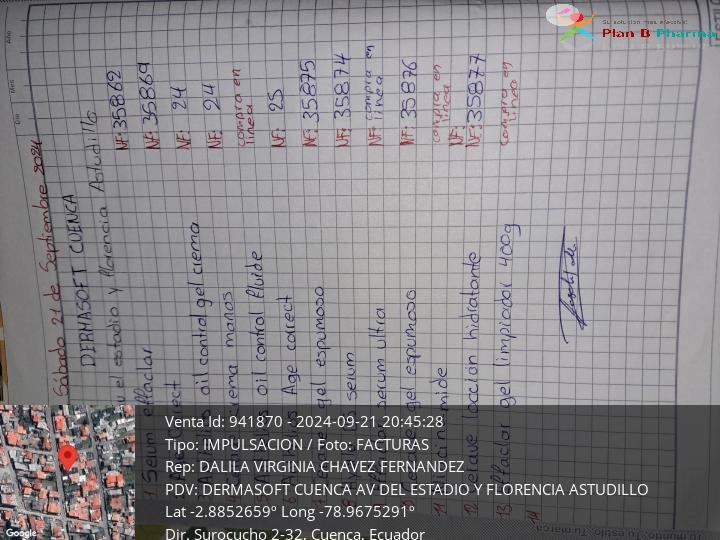 Su solución más efectiva!
Plan B Pharma
Día Mes Año
Sábado 21 de Septiembre 2024
DERMASOFT CUENCA
el estadio y florencia Astudillo
1 Serum effaclar NF: 35862
NF: 35869
oil control gel crema NF: 24
crema manos NF: 24
oil control fluide compra en línea
Age correct NF: 25
gel espumoso NF: 35875
serum NF: 35874
serum ultra NF: compra en línea
gel espumoso NF: 35876
11 mide compra en línea
12 cerave locción hidratante NF: NF: 35877
13 effaclar gel limpiador 400g compra en línea
14
Google
Venta Id: 941870 - 2024-09-21 20:45:28
Tipo: IMPULSACION / Foto: FACTURAS
Rep: DALILA VIRGINIA CHAVEZ FERNANDEZ
PDV: DERMASOFT CUENCA AV DEL ESTADIO Y FLORENCIA ASTUDILLO
Lat -2.8852659º Long -78.9675291º
Dir. Surocucho 2-32, Cuenca, Ecuador